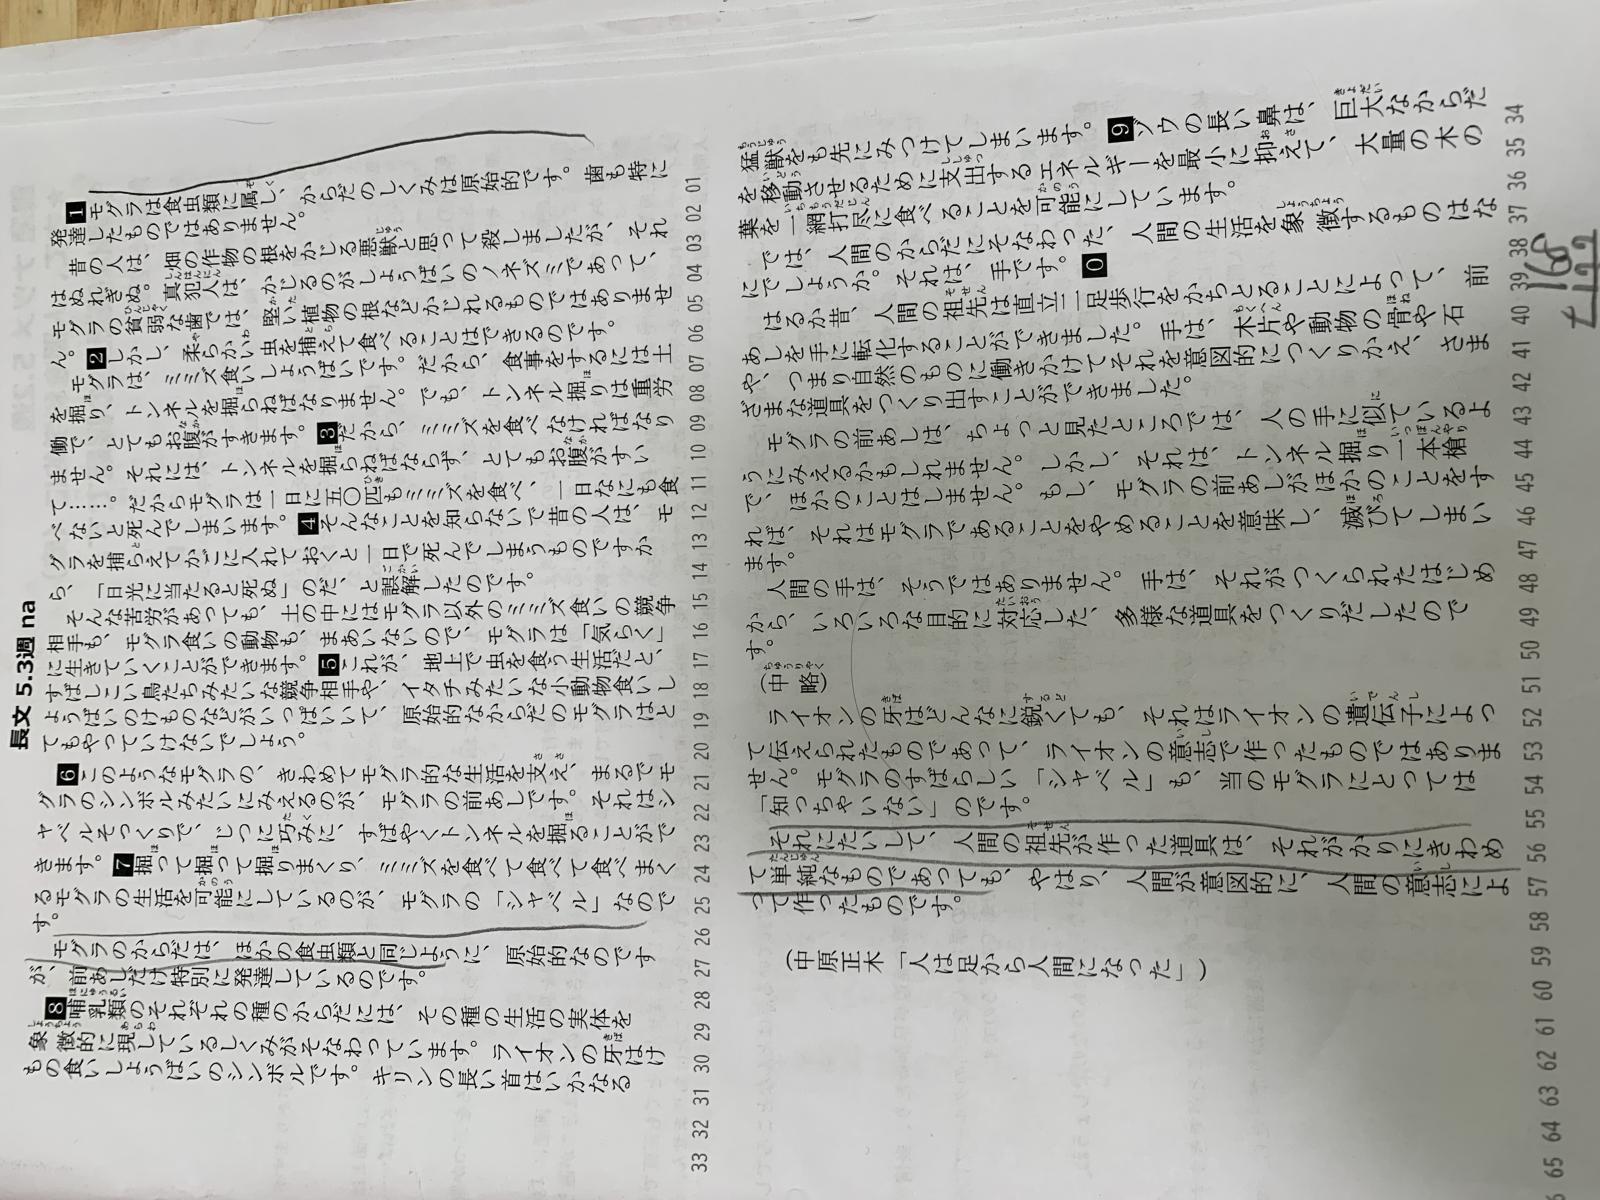 長文 5.3週 na
1モグラは食虫類に属し、からだのしくみは原始的です。歯も特に
発達したものではありません。
昔の人は、畑の作物の根をかじる悪獣と思って殺しましたが、それ
はぬれぎぬ。真犯人は、かじるのがしょうばいのノネズミであって、
モグラの貧弱な歯では、堅い植物の根などかじれるものではありませ
ん。2しかし、柔らかい虫を捕えて食べることはできるのです。
モグラは、ミミズ食いしょうばいです。だから、食事をするには土
を掘り、トンネルを掘らねばなりません。でも、トンネル掘りは重労
働で、とてもお腹がすきます。3だから、ミミズを食べなければなり
ません。それには、トンネルを掘らねばならず、とてもお腹がすい
て……。だからモグラは一日に五〇匹もミミズを食べ、一日なにも食
べないと死んでしまいます。4そんなことを知らないで昔の人は、モ
グラを捕らえてかごに入れておくと一日で死んでしまうものですか
ら、「日光に当たると死ぬ」のだ、と誤解したのです。
そんな苦労があっても、土の中にはモグラ以外のミミズ食いの競争
相手も、モグラ食いの動物も、まあいないので、モグラは「気らく」
に生きていくことができます。5これが、地上で虫を食う生活だと、
すばしこい鳥たちみたいな競争相手や、イタチみたいな小動物食いし
ょうばいのけものなどがいっぱいいて、原始的なからだのモグラはと
てもやっていけないでしょう。
6このようなモグラの、きわめてモグラ的な生活を支え、まるでモ
グラのシンボルみたいにみえるのが、モグラの前あしです。それはシ
ャベルそっくりで、じつに巧みに、すばやくトンネルを掘ることがで
きます。7掘って掘って掘りまくり、ミミズを食べて食べて食べまく
るモグラの生活を可能にしているのが、モグラの「シャベル」なので
す。
モグラのからだは、ほかの食虫類と同じように、原始的なのです
が、前あしだけ特別に発達しているのです。
8哺乳類のそれぞれの種のからだには、その種の生活の実体を
象徴的に現しているしくみがそなわっています。ライオンの牙はけ
もの食いしょうばいのシンボルです。キリンの長い首はいかなる
01 02 03 04 05 06 07 08 09 10 11 12 13 14 15 16 17 18 19 20 21 22 23 24 25 26 27 28 29 30 31 32 33
猛獣をも先にみつけてしまいます。9ゾウの長い鼻は、巨大なからだ
を移動させるために支出するエネルギーを最小に抑えて、大量の木の
葉を一網打尽に食べることを可能にしています。
では、人間のからだにそなわった、人間の生活を象徴するものはな
にでしょうか。それは、手です。0
はるか昔、人間の祖先は直立二足歩行をかちとることによって、前
あしを手に転化することができました。手は、木片や動物の骨や石
や、つまり自然のものに働きかけてそれを意図的につくりかえ、さま
ざまな道具をつくり出すことができました。
モグラの前あしは、ちょっと見たところでは、人の手に似ているよ
うにみえるかもしれません。しかし、それは、トンネル掘り一本槍
で、ほかのことはしません。もし、モグラの前あしがほかのことをす
れば、それはモグラであることをやめることを意味し、滅びてしまい
ます。
人間の手は、そうではありません。手は、それがつくられたはじめ
から、いろいろな目的に対応した、多様な道具をつくりだしたので
す。
(中略)
ライオンの牙はどんなに鋭くても、それはライオンの遺伝子によっ
て伝えられたものであって、ライオンの意志で作ったものではありま
せん。モグラのすばらしい「シャベル」も、当のモグラにとっては
「知っちゃいない」のです。
それにたいして、人間の祖先が作った道具は、それがかりにきわめ
て単純なものであっても、やはり、人間が意図的に、人間の意志によ
って作ったものです。
(中原正木「人は足から人間になった」)
34 35 36 37 38 39 40 41 42 43 44 45 46 47 48 49 50 51 52 53 54 55 56 57 58 59 60 61 62 63 64 65
168